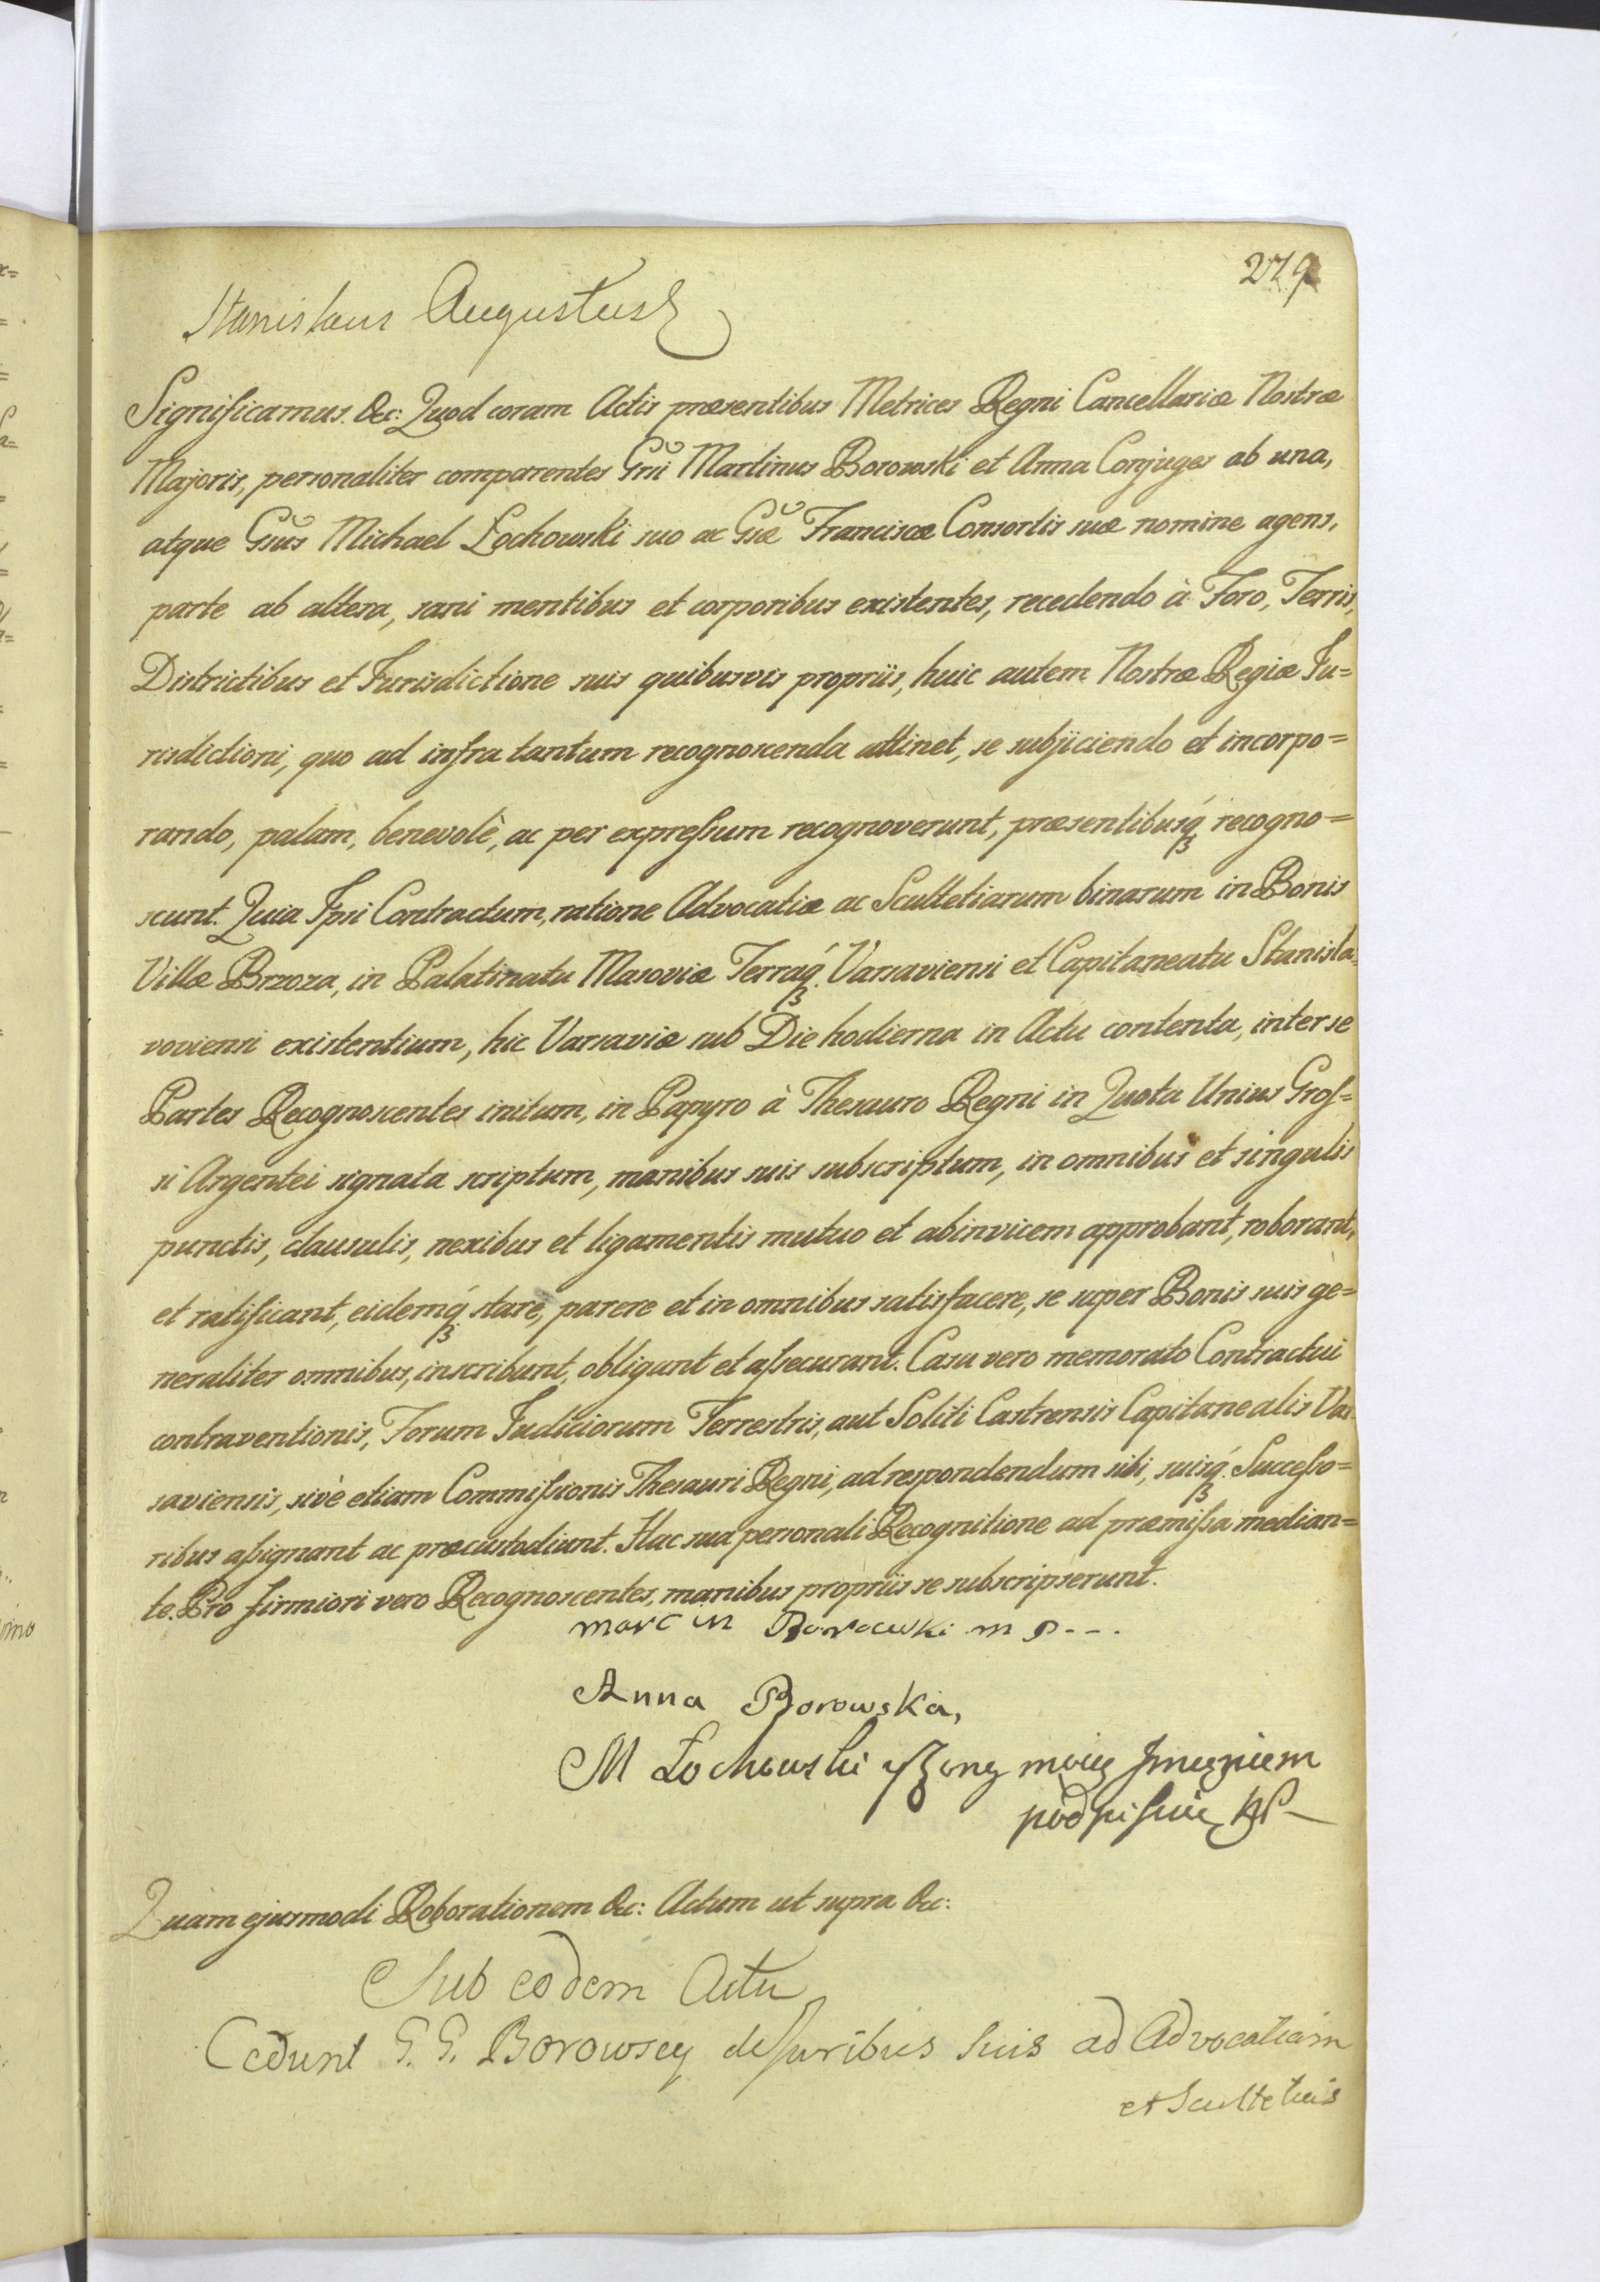 279
Stanislaus Augustus
Significamus. &c: Quod coram Actis præsentibus Metrices Regni Cancellariæ Nostræ
Majoris, personaliter comparentes Gñi Martinus Borowski et Anna Conjuges ab una,
atque Gsũs Michael Łochowski suo ac Gsæ Franciscæ Consortis suæ nomine agens,
parte ab altera, sani mentibus et corporibus existentes, recedendo à Foro, Terris,
Districtibus et Jurisdictione suis quibusvis propriis, huic autem Nostræ Regiæ Ju=
risdictioni, quo ad infra tantum recognoscenda attinet, se subjiciendo et incorpo=
rando, palam, benevolè, ac per expressum recognoverunt, præsentibusq́ recogno=
scunt. Quia Ipsi Contractum, ratione Advocatiæ ac Scultetiarum binarum in Bonis
Villæ Brzoza, in Palatinatu Masoviæ Terraq́ Varsaviensi et Capitaneatu Stanisla=
voviensi existentium, hic Varsaviæ sub Die hodierna in Actu contenta, inter se
Partes Recognoscentes initum, in Papyro à Thesauro Regni in Quota Unius Gros=
si Argentei signata scriptum, manibus suis subscriptum, in omnibus et singulis
punctis, clausulis, nexibus et ligamentis mutuo et abinvicem approbant, roborant,
et ratificant, eidemq́ stare, parere et in omnibus satisfacere, se super Bonis suis ge=
neraliter omnibus, inscribunt, obligant et assecurant. Casu vero memorato Contractui
contraventionis, Forum Judiciorum Terrestris, aut Soliti Castrensis Capitanealis Var
saviensis, sivè etiam Commissionis Thesauri Regni, ad respondendum sibi, suisq́ Successo=
ribus assignant ac præcustodiunt. Hac sua personali Recognitione ad præmissa median=
te. Pro firmiori vero Recognoscentes, manibus propriis se subscripserunt.
marcin Borowski m p---
Anna Borowska,
M Łochowski y Zoną moią Imieniem
podpisuię
Quam ejusmodi Roborationem &c: Actum ut supra &c:
Sub eodem Actu
Cedunt G. G. Borowscy de Juribus suis ad Advocatiam
et Scultetias